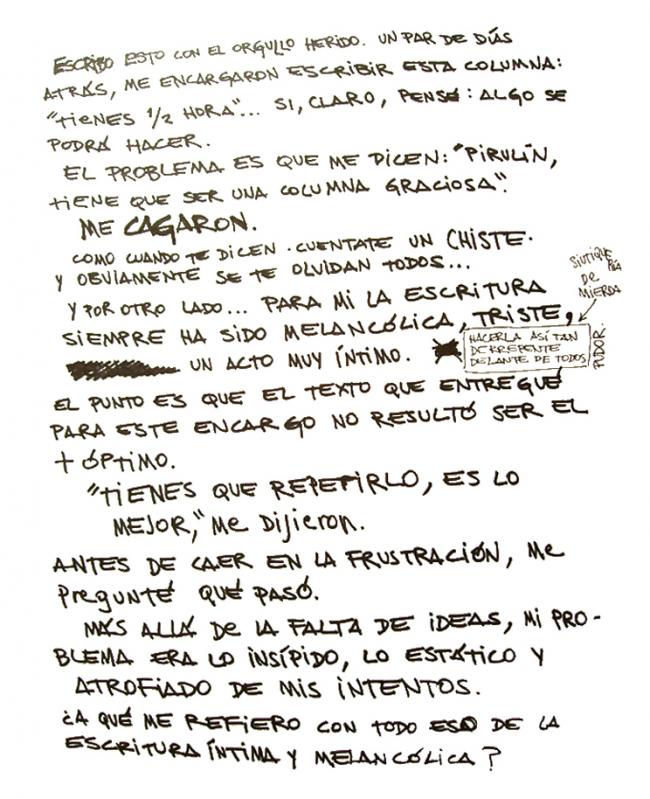 ESCRIBO ESTO CON EL ORGULLO HERIDO. UN PAR DE DÍAS
ATRÁS, ME ENCARGARON ESCRIBIR ESTA COLUMNA:
"TIENES 1/2 HORA"... SI, CLARO, PENSÉ: ALGO SE
PODRÁ HACER.
EL PROBLEMA ES QUE ME DICEN: "PIRULÍN,
TIENE QUE SER UNA COLUMNA GRACIOSA".
ME CAGARON.
COMO CUANDO TE DICEN. CUENTATE UN CHISTE.
Y OBVIAMENTE SE TE OLVIDAN TODOS...
Y POR OTRO LADO... PARA MI LA ESCRITURA
SIEMPRE HA SIDO MELANCÓLICA, TRISTE,
SIUTIQUERÍA
DE
MIERDA
UN ACTO MUY ÍNTIMO.
HACERLA ASÍ TAN
DE RREPENTE
DELANTE DE TODOS
PUDOR.
EL PUNTO ES QUE EL TEXTO QUE ENTREGUÉ
PARA ESTE ENCARGO NO RESULTÓ SER EL
+ ÓPTIMO.
"TIENES QUE REPETIRLO, ES LO
MEJOR," ME DIJIERON.
ANTES DE CAER EN LA FRUSTRACIÓN, ME
PREGUNTÉ QUÉ PASÓ.
MÁS ALLÁ DE LA FALTA DE IDEAS, MI PRO-
BLEMA ERA LO INSÍPIDO, LO ESTÁTICO Y
ATROFIADO DE MIS INTENTOS.
¿A QUÉ ME REFIERO CON TODO ESO DE LA
ESCRITURA ÍNTIMA Y MELANCÓLICA?